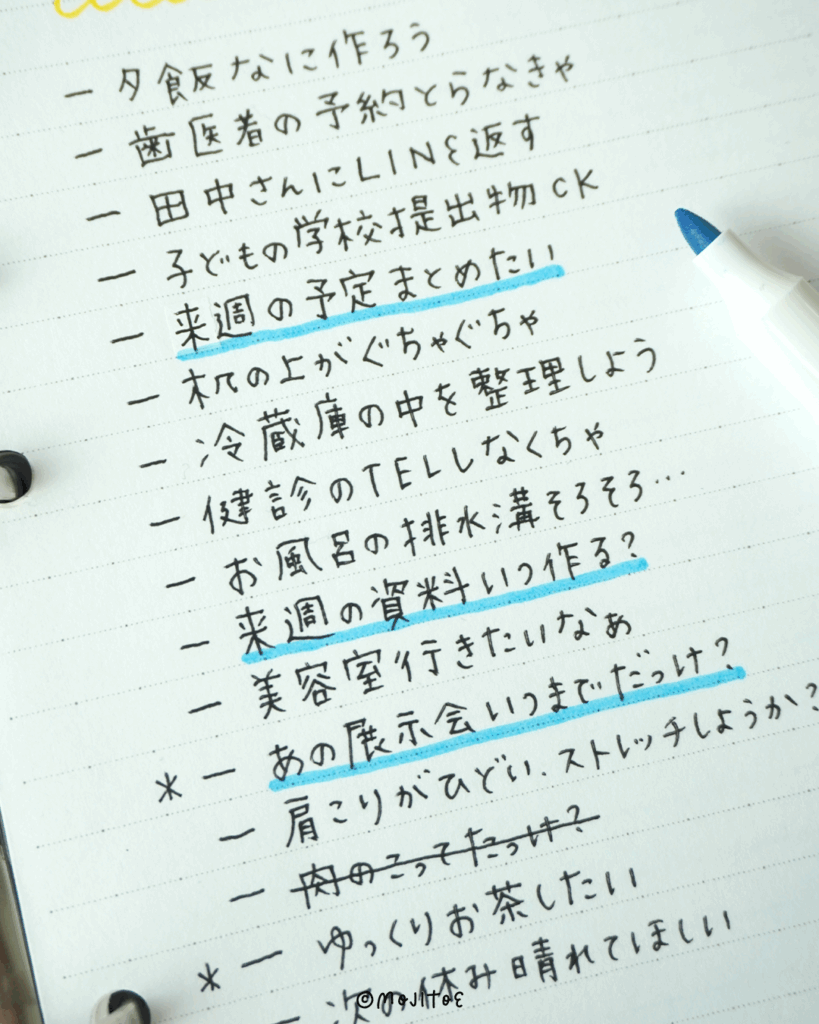 — 夕飯なに作ろう
— 歯医者の予約とらなきゃ
— 田中さんにLINEを返す
— 子どもの学校提出物CK
— 来週の予定まとめたい
— 机の上がぐちゃぐちゃ
— 冷蔵庫の中を整理しよう
— 健診のTELしなくちゃ
— お風呂の排水溝そろそろ…
— 来週の資料いつ作る?
— 美容室行きたいなぁ
* — あの展示会いつまでだっけ?
— 肩こりがひどい、ストレッチしようか?
— 肉のこってたっけ?
* — ゆっくりお茶したい
— 次の休み晴れてほしい
©MOJITOE